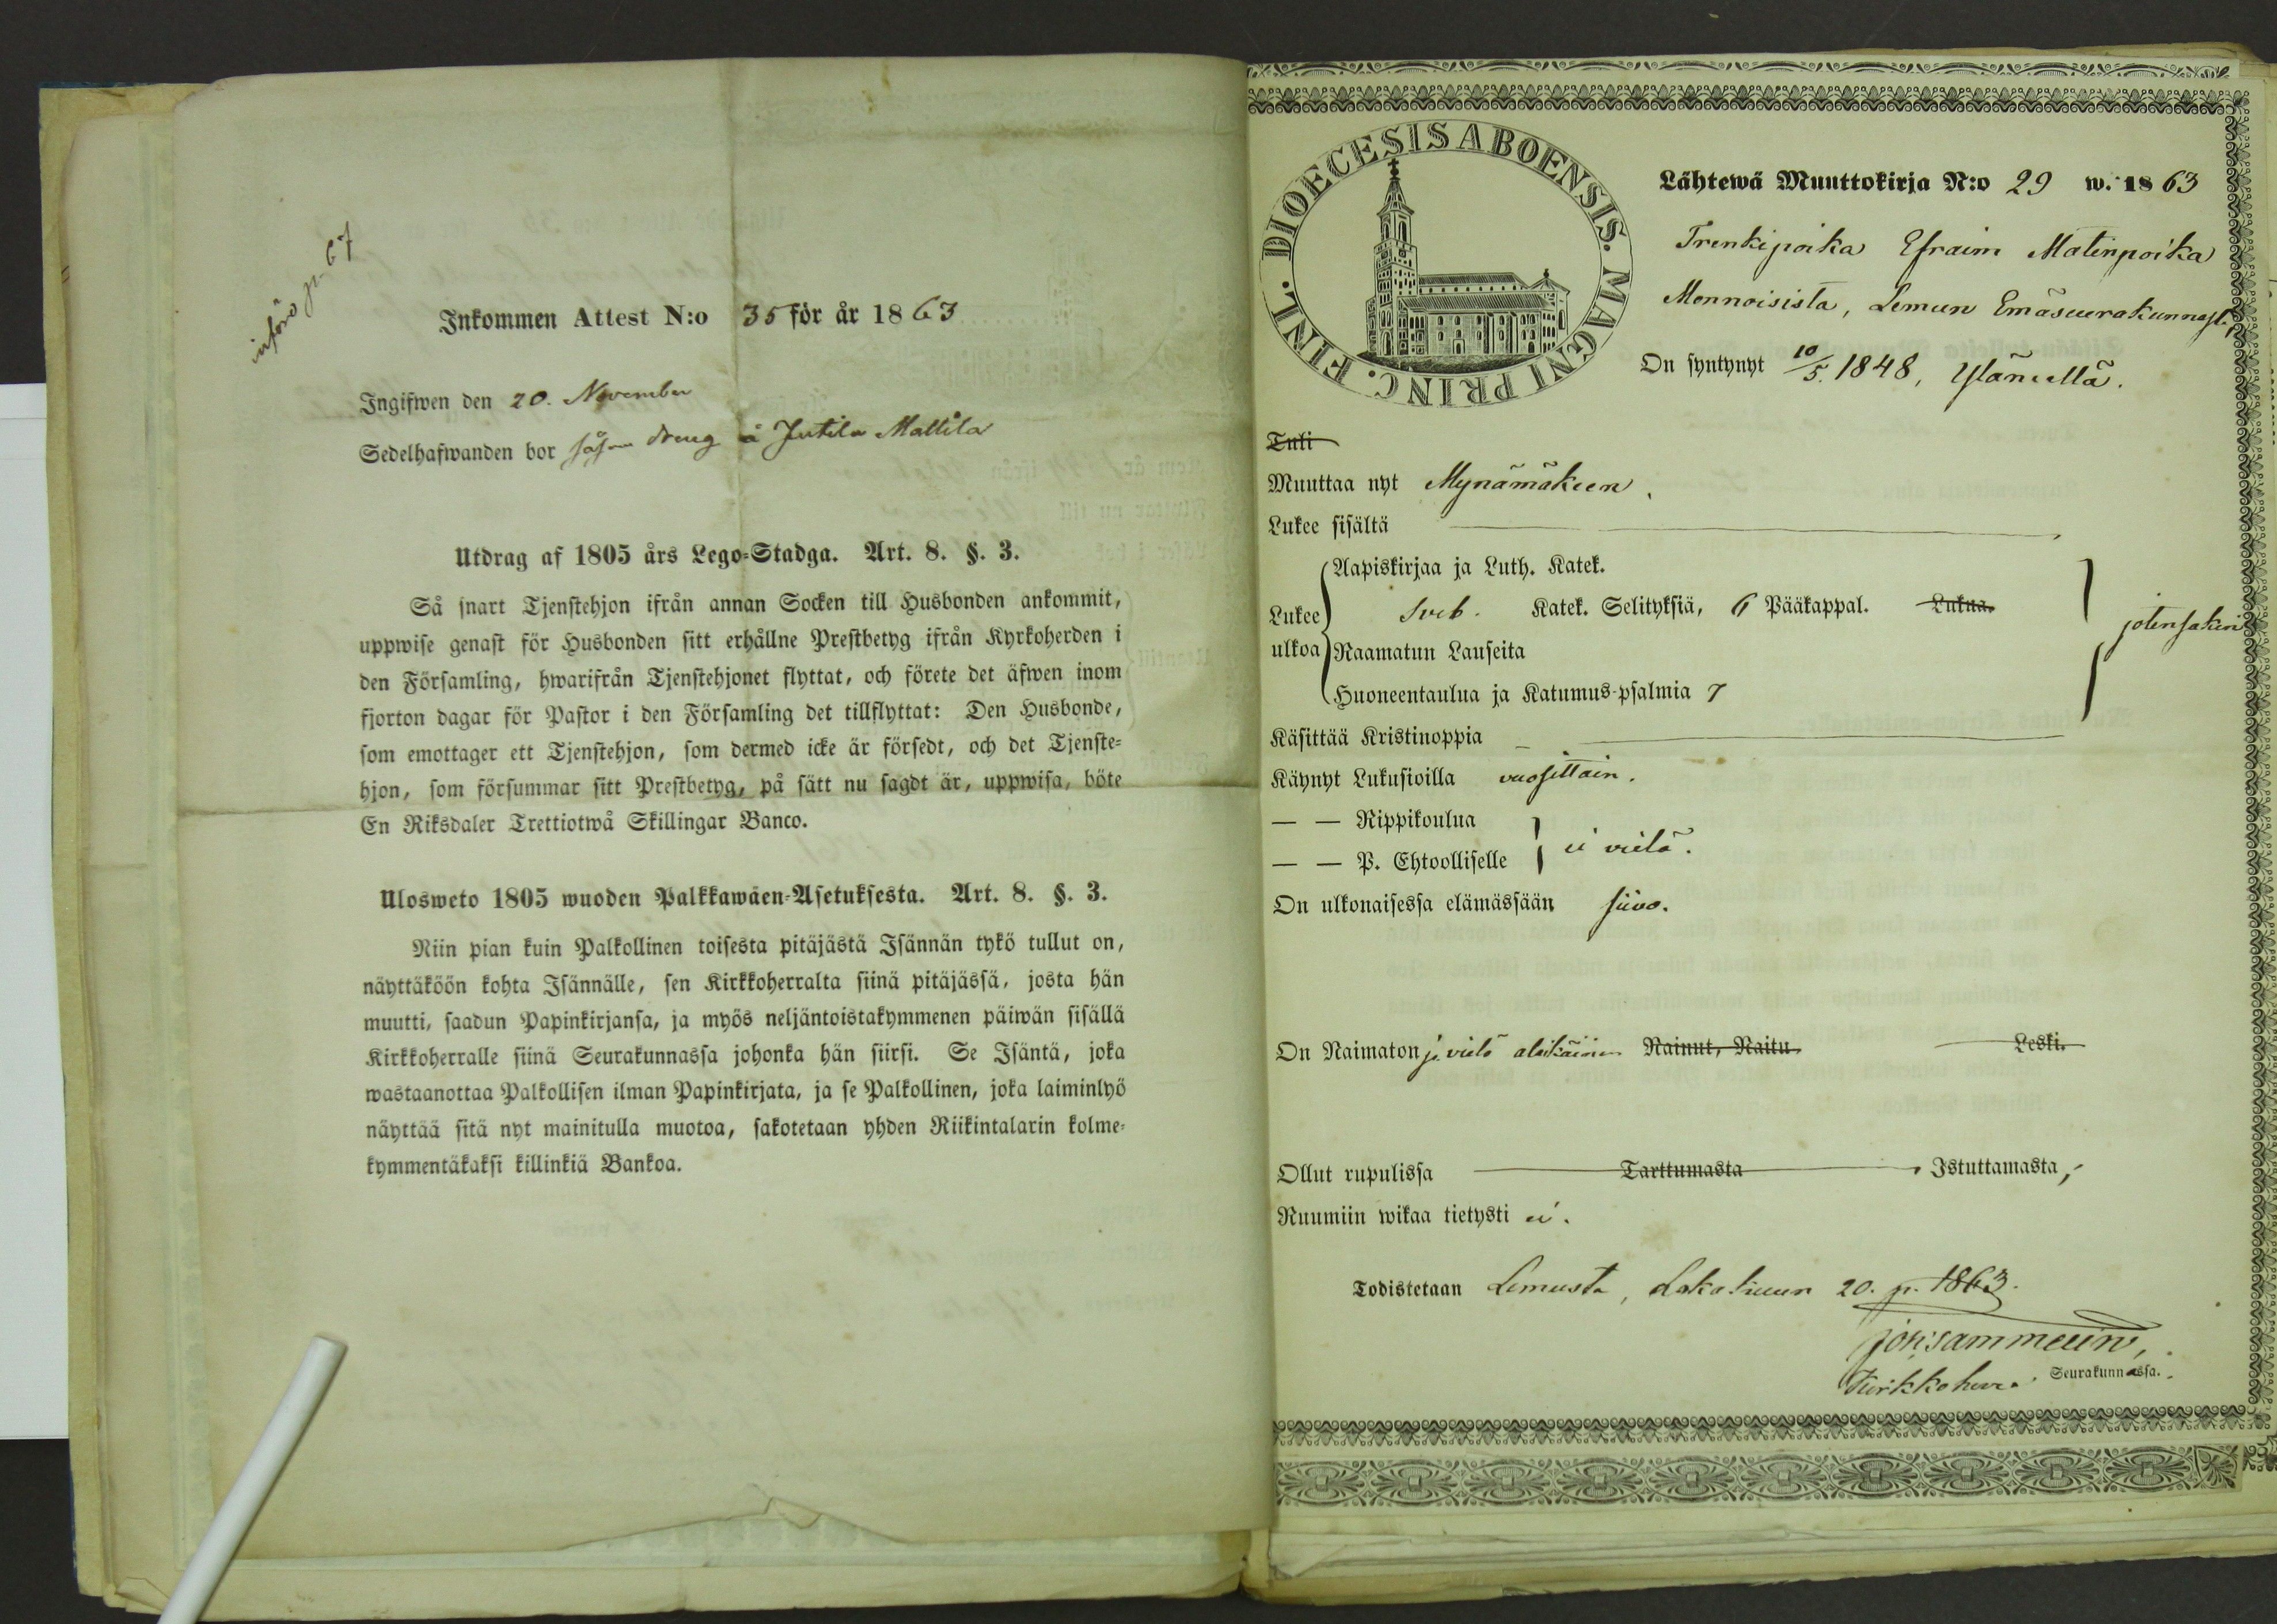 införd p. 67
Inkommen Attest N:o 35 för år 1863
Ingifwen den 20. November
Sedelhafwanden bor såsom dreng å Jutila Mattila
Utdrag af 1805 års Lego-Stadga. Art. 8. §. 3.
Så snart Tjenstehjon ifrån annan Socken till Husbonden ankommit,
uppwise genast för Husbonden sitt erhållne Prestbetyg ifrån Kyrkoherden i
den Församling, hwarifrån Tjenstehjonet flyttat, och förete det äfwen inom
fjorton dagar för Pastor i den Församling det tillflyttat: Den Husbonde,
som emottager ett Tjenstehjon, som dermed icke är försedt, och det Tjenste-
hjon, som försummar sitt Prestbetyg, på sätt nu sagdt är, uppwisa, böte
En Riksdaler Trettiotwå Skillingar Banco.
Ulosweto 1805 wuoden Palkkawäen-Asetuksesta. Art. 8. §. 3.
Niin pian kuin Palkollinen toisesta pitäjästä Isännän tykö tullut on,
näyttäköön kohta Isännälle, sen Kirkkoherralta siinä pitäjässä, josta hän
muutti, saadun Papinkirjansa, ja myös neljäntoistakymmenen päiwän sisällä
Kirkkoherralle siinä Seurakunnassa johonka hän siirsi. Se Isäntä, joka
wastaanottaa Palkollisen ilman Papinkirjata, ja se Palkollinen, joka laiminlyö
näyttää sitä nyt mainitulla muotoa, sakotetaan yhden Riikintalarin kolme-
kymmentäkaksi killinkiä Bankoa.
DIOECESIS ABOENSIS. MAGNI PRINC. FINL.
Lähtewä Muuttokirja N:o 29 w. 1863
Trenkipoika Efraim Matinpoika
Monnoisista, Lemun Emäseurakunnast,
On syntynyt 10/5. 1848, Yläneellä.
Tuli
Muuttaa nyt Mynämäkeen.
Lukee sisältä
Lukee ulkoa
Aapiskirjaa ja Luth. Katek.
Sveb. Katek. Selityksiä, 6 Pääkappal. Lukua.
Raamatun Lauseita
Huoneentaulua ja Katumus-psalmia 7
jotensakin
Käsittää Kristinoppia
Käynyt Lukusioilla vuosittain.
— — Rippikoulua
— — P. Ehtoolliselle
ei vielä.
On ulkonaisessa elämässään siivo.
On Naimaton ja vielä alaikäinen Nainut, Naitu Leski.
Ollut rupulissa Tarttumasta Istuttamasta,
Ruumiin wikaa tietysti ei.
Todistetaan Lemusta, Lokakuun 20. p. 1863.
Joh: Sammelin,
Kirkkoherra. Seurakunnassa.